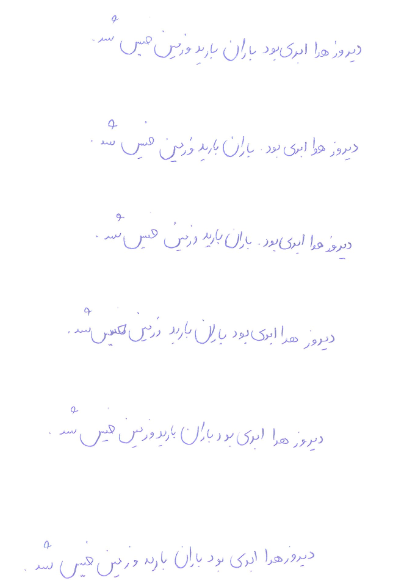 دیروز هوا ابری بود باران بارید و زمین خیس شد.
دیروز هوا ابری بود. باران بارید و زمین خیس شد.
دیروز هوا ابری بود. باران بارید و زمین خیس شد.
دیروز هوا ابری بود باران بارید و زمین خیس شد.
دیروز هوا ابری بود باران بارید و زمین خیس شد.
دیروز هوا ابری بود باران بارید و زمین خیس شد.